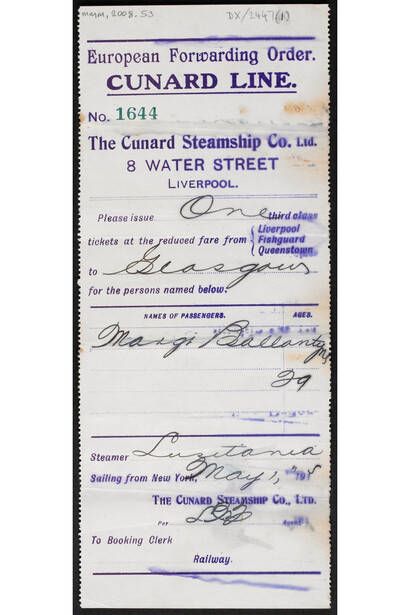 MMM, 2008.53 DX/2447(1)
European Forwarding Order.
CUNARD LINE.
No. 1644
The Cunard Steamship Co. Ltd.
8 WATER STREET
LIVERPOOL.
Please issue One third class
tickets at the reduced fare from { Liverpool
Fishguard
Queenstown
to Glasgow
for the persons named below:
NAMES OF PASSENGERS. AGES.
Margt Ballantyne
29
Steamer Lusitania
Sailing from New York, May 1, 191
THE CUNARD STEAMSHIP CO., LTD.
Per Agent
To Booking Clerk
Railway.